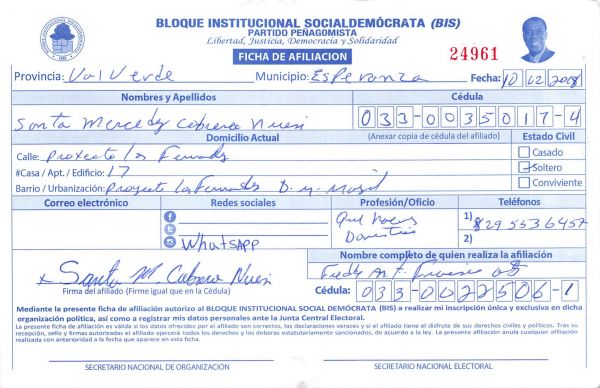 BLOQUE INSTITUCIONAL SOCIALDEMÓCRATA (BIS)
PARTIDO PEÑAGOMISTA
Libertad, Justicia, Democracia y Solidaridad
FICHA DE AFILIACION
24961
Provincia: Valverde Municipio: Esperanza Fecha: 10 02 2018
Nombres y Apellidos Cédula
Santa Mercedes Cabrera 033-0035017-4
Domicilio Actual (Anexar copia de cédula del afiliado) Estado Civil
Calle: Proyecto Los Casado
#Casa / Apt. / Edificio: 17 Soltero
Barrio / Urbanización: Proyecto D. M. Conviviente
Correo electrónico Redes sociales Profesión/Oficio Teléfonos
1) 8295536457
2)
WhatsApp
Nombre completo de quien realiza la afiliación
Santa M. Cabrera
Fredy Ant.
Firma del afiliado (Firme igual que en la Cédula) Cédula: 033-0022506-1
Mediante la presente ficha de afiliación autorizo al BLOQUE INSTITUCIONAL SOCIAL DEMÓCRATA (BIS) a realizar mi inscripción única y exclusiva en dicha
organización política, así como a registrar mis datos personales ante la Junta Central Electoral.
La presente ficha de afiliación es válida si los datos ofrecidos por el afiliado son correctos, las declaraciones veraces y si el afiliado tiene el disfrute de sus derechos civiles y políticos. Tras su
recepción, sello y firmas autorizadas el afiliado ejercerá todos los derechos y los deberes estatutariamente sancionados, de acuerdo a la ley. La presente afiliación anula cualquier afiliación
realizada con anterioridad a la fecha que aparece en esta ficha.
SECRETARIO NACIONAL DE ORGANIZACIÓN SECRETARIO NACIONAL ELECTORAL